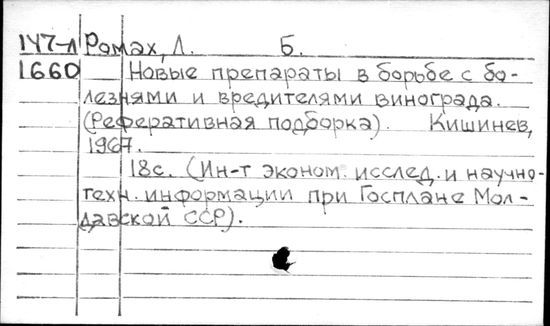 147-Л Ромах, Л. Б.
1660 Новые препараты в борьбе с бо-
лезнями и вредителями винограда.
(Реферативная подборка). Кишинев,
1967.
18с. (Ин-т эконом. исслед. и научно-
техн. информации при Госплане Мол-
давской ССР).